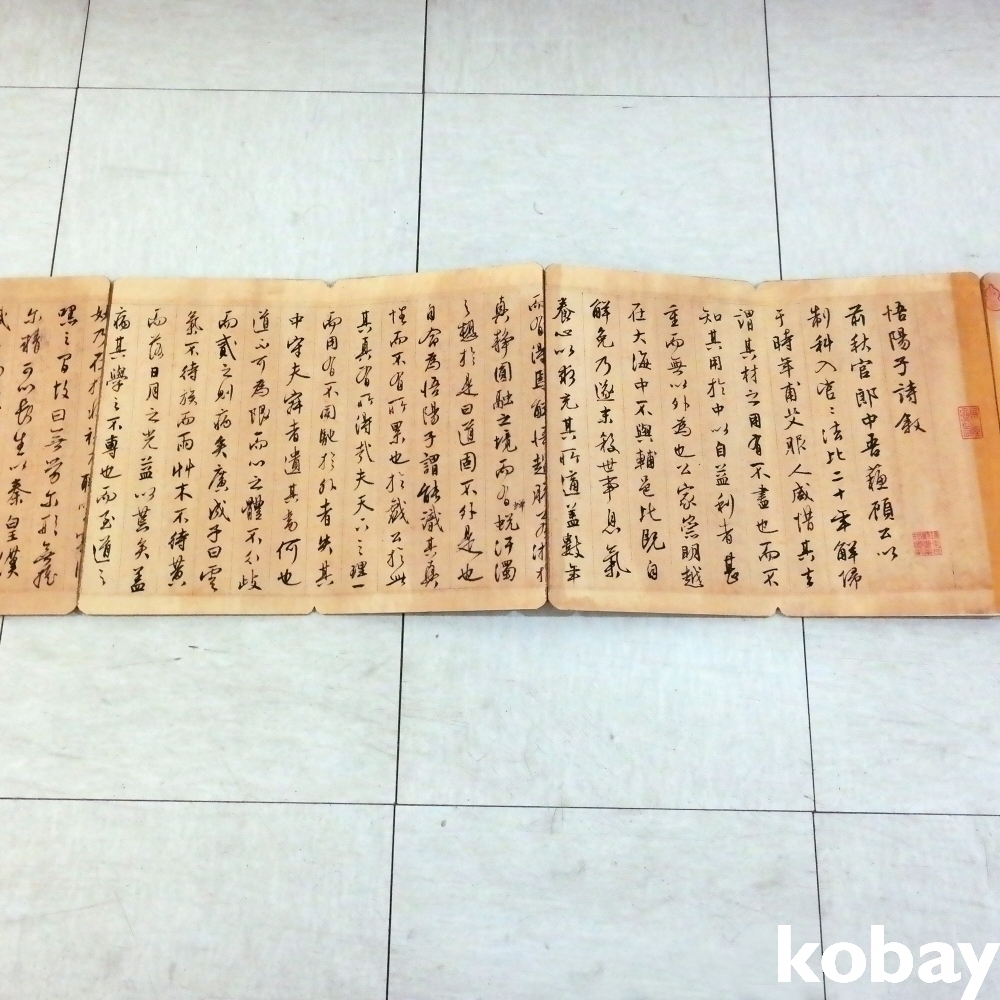 悟陽子詩敘
前秋官郎中吾蘇顧公以
制科入官官法比二十年解歸
于時年甫艾服人咸惜其去
謂其材之用有不盡也而不
知其用於中以自益利者甚
重而無以外為也公家崇明越
在大海中不與輔邑比既自
解免乃遂末殺世事息氣
養心以彩充其所道蓋數年
而有得焉
真靜圓融之境而有蛻汙濁
之趣於是曰道固不外是也
自命為悟陽子謂能識其真
性而不有所累也於戲公於此
其真有所得哉夫天下之理一
而用有不同馳於外者失其
中守夫寂者遺其為何也
道不可為限而心之體不分歧
而貳之則病矣廣成子曰雲
氣不待族而雨艸木不待黃
而落日月之光益以荒矣蓋
病其學之不專也而至道之
妙乃在於
嘿之間故曰無勞爾形無搖
爾精可以長生以秦皇漢
kobay